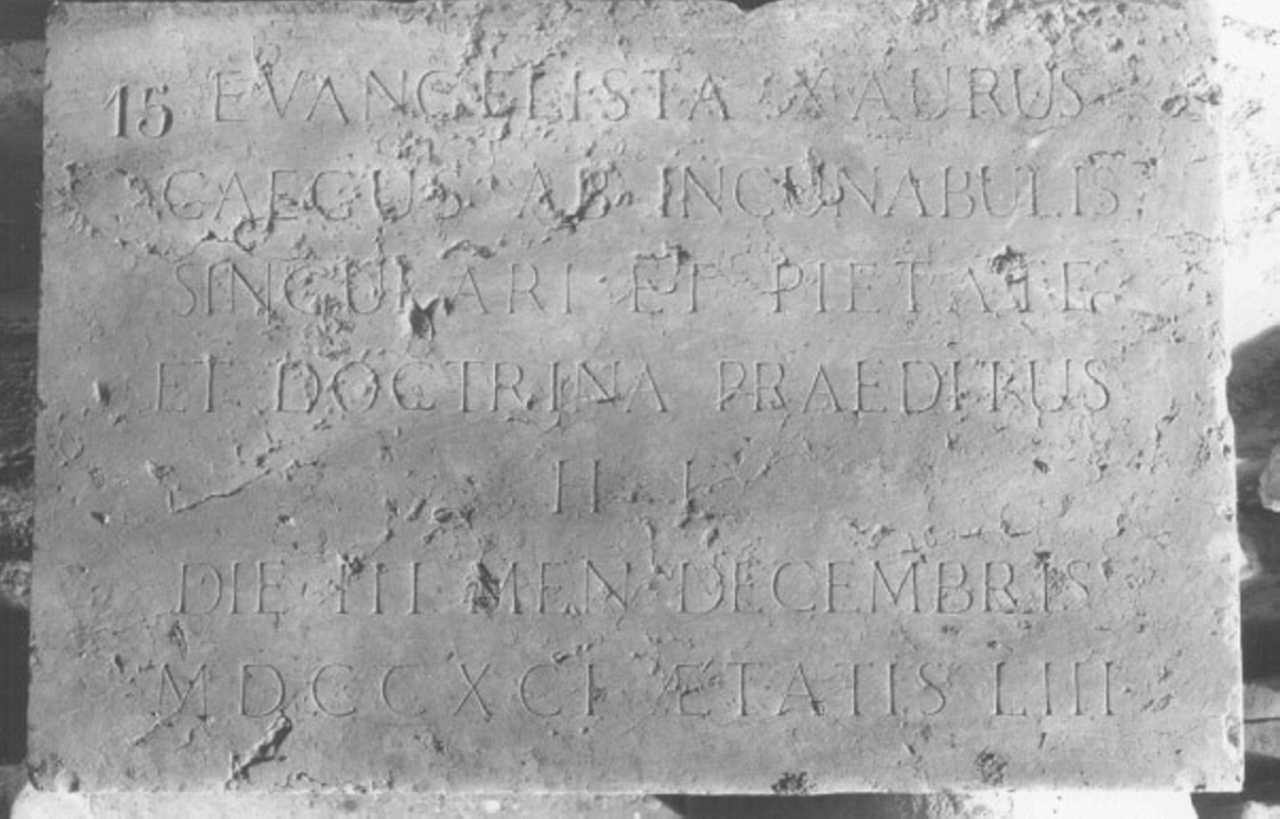 15 EVANGELISTA XAURUS
CAECUS AB INCUNABULIS
SINGULARI ET PIETATE
ET DOCTRINA PRAEDITUS
H I
DIE III MEN DECEMBRIS
MDCCXCI ÆTATIS LIII